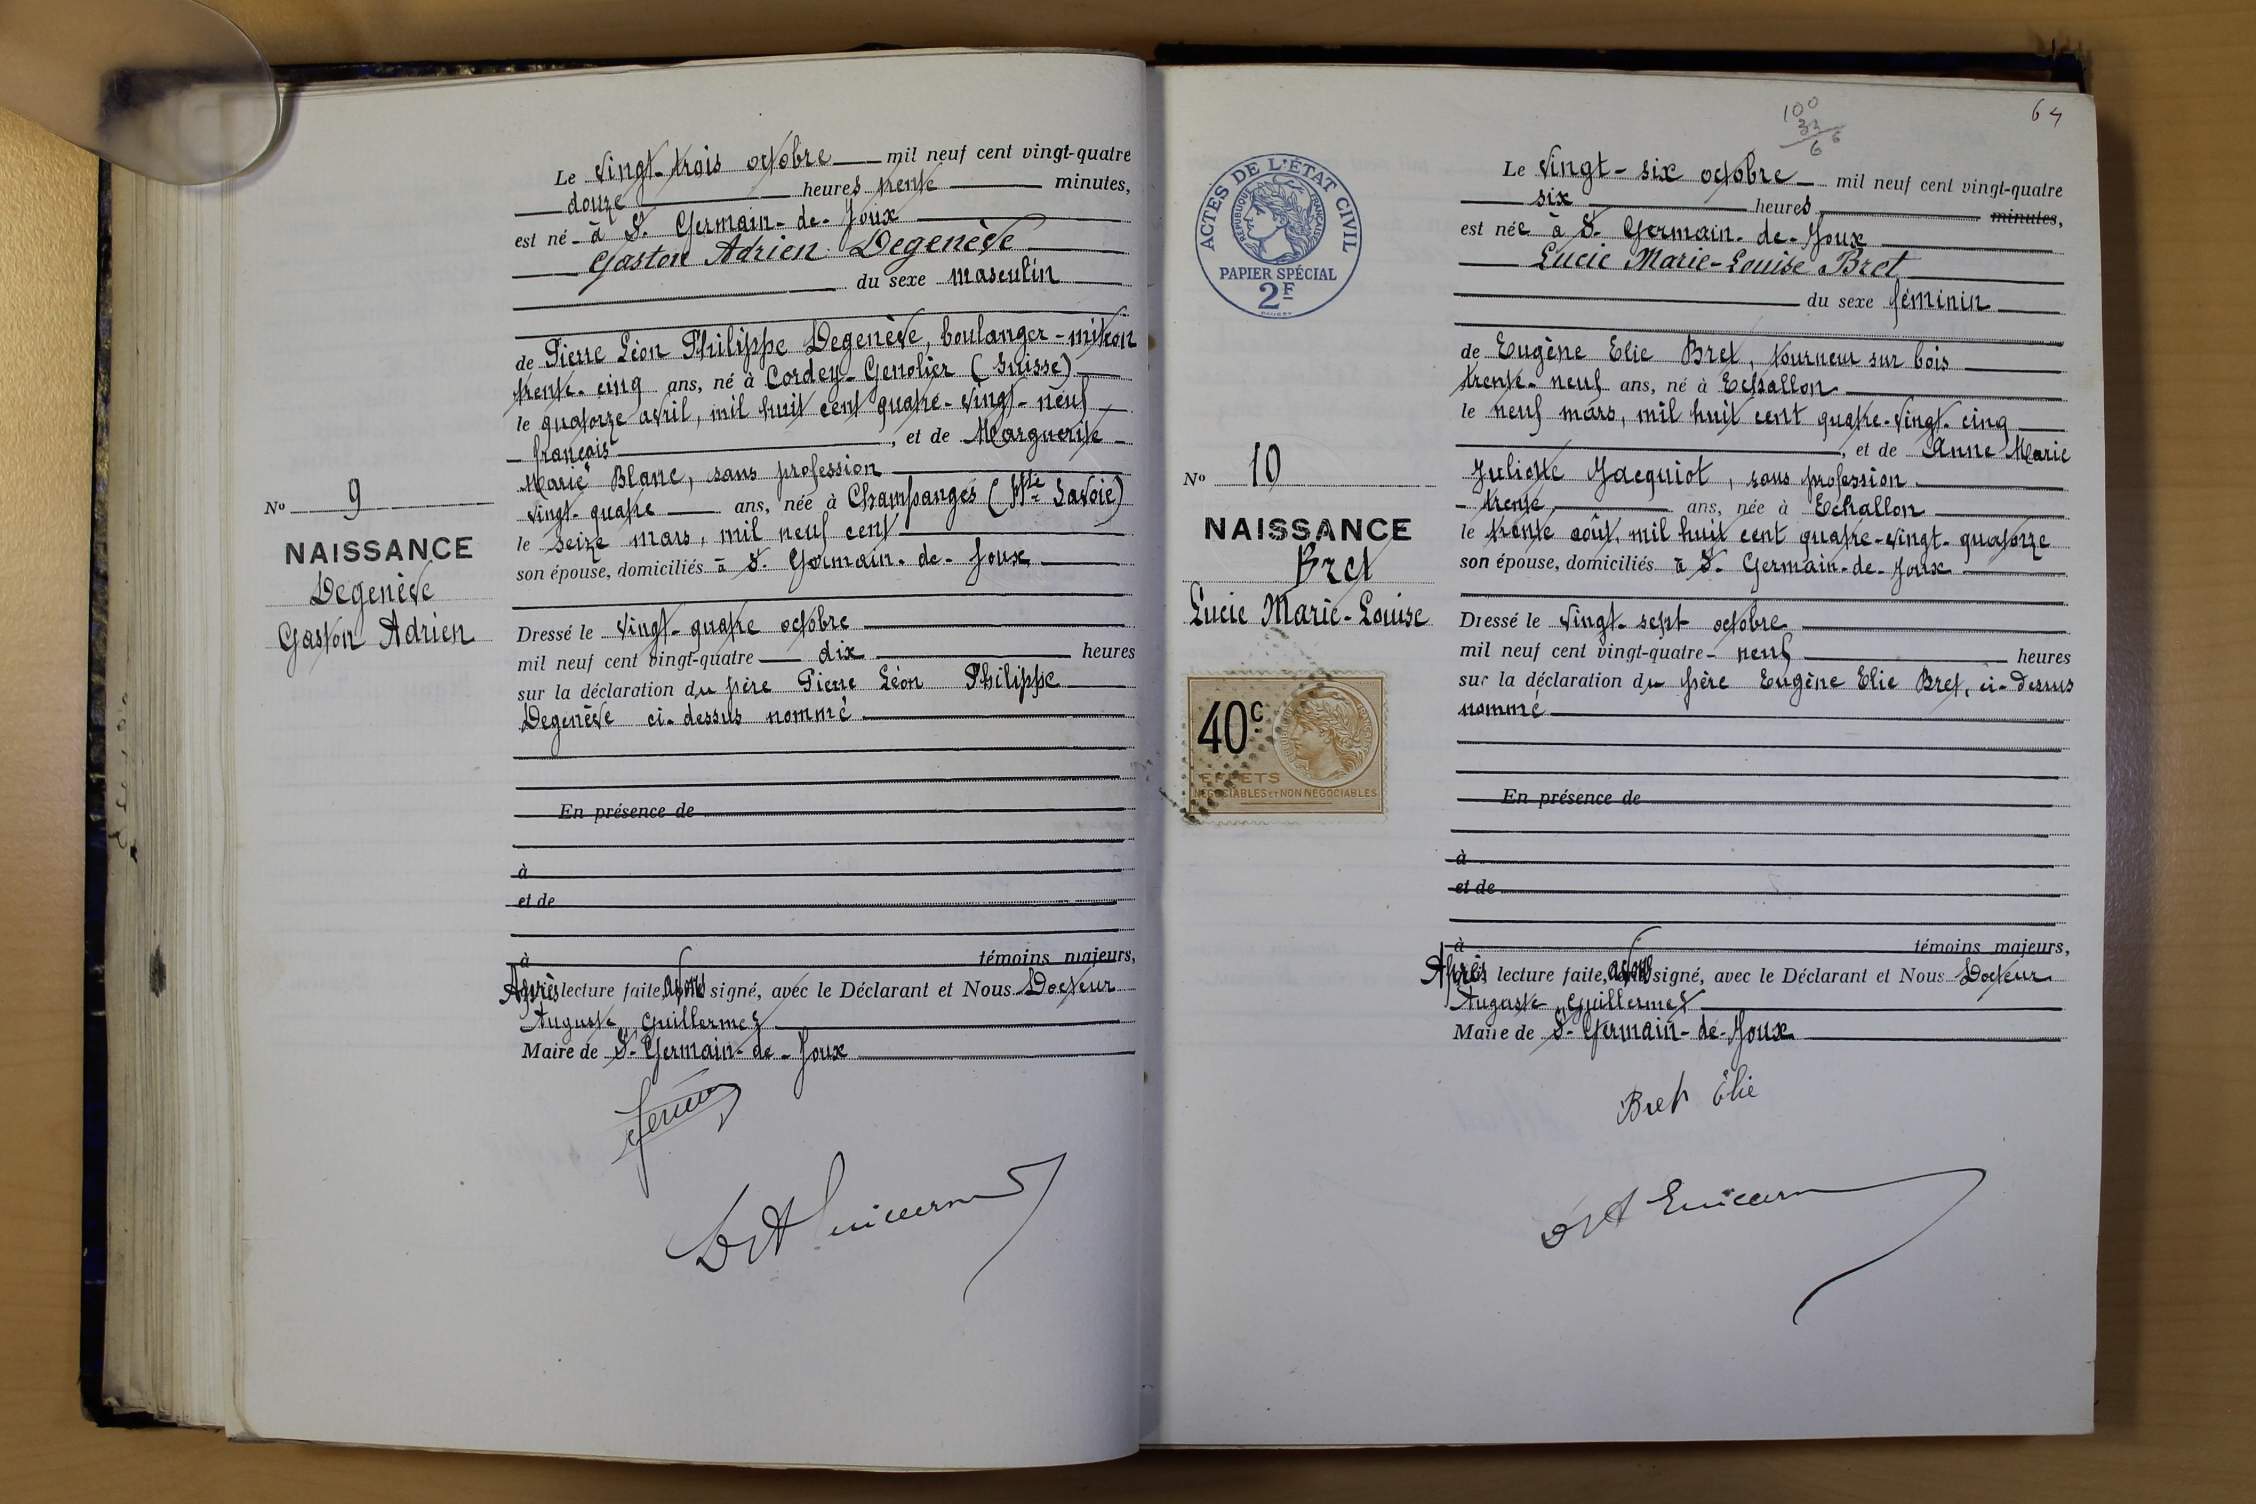 Le vingt-trois octobre mil neuf cent vingt-quatre
douze heures trente minutes,
est né à St Germain-de-Joux
Gaston Adrien Degenève
du sexe masculin
de Pierre Léon Philippe Degenève, boulanger-mitron
trente-cinq ans, né à Cordey-Genolier (Suisse)
le quatorze avril, mil huit cent quatre-vingt-neuf
français, et de Marguerite
Marie Blanc, sans profession
vingt-quatre ans, née à Champanges (Hte Savoie)
le seize mars, mil neuf cent
son épouse, domiciliés à St Germain-de-Joux
Dressé le vingt-quatre octobre
mil neuf cent vingt-quatre dix heures
sur la déclaration du père Pierre Léon Philippe
Degenève ci-dessus nommé
En présence de
à
et de
à témoins majeurs,
Après lecture faite, avons signé, avec le Déclarant et Nous Docteur
Auguste Guillermet
Maire de St Germain-de-Joux
No 9
NAISSANCE
Degenève
Gaston Adrien
64
100
33
66
ACTES DE L'ÉTAT CIVIL
RÉPUBLIQUE FRANÇAISE
PAPIER SPÉCIAL
2F
Le vingt-six octobre mil neuf cent vingt-quatre
six heures minutes,
est née à St Germain-de-Joux
Lucie Marie-Louise Bret
du sexe féminin
de Eugène Elie Bret, tourneur sur bois
trente-neuf ans, né à Echallon
le neuf mars, mil huit cent quatre-vingt-cinq
, et de Anne Marie
Juliette Jacquiot, sans profession
trente, ans, née à Echallon
le trente août, mil huit cent quatre-vingt-quatorze
son épouse, domiciliés à St Germain-de-Joux
Dressé le vingt-sept octobre
mil neuf cent vingt-quatre neuf heures
sur la déclaration du père Eugène Elie Bret, ci-dessus
nommé
En présence de
à
et de
à témoins majeurs,
Après lecture faite, avons signé, avec le Déclarant et Nous Docteur
Auguste Guillermet
Maire de St Germain-de-Joux
Bret Élie
No 10
NAISSANCE
Bret
Lucie Marie-Louise
40c
EFFETS
NÉGOCIABLES ET NON NÉGOCIABLES